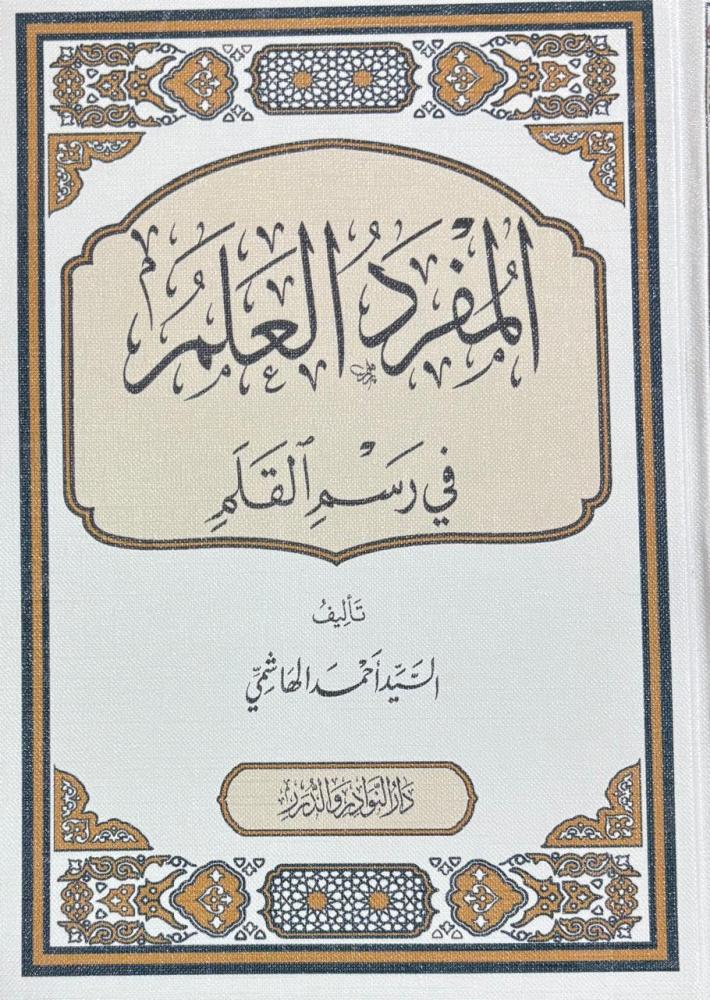 المُفْرَدُ العَلَمُ
في رَسْمِ القَلَمِ
تَأليفُ
السَّيِّد أحْمَد الهَاشِميِّ
دَارُ النَّوادِرِ وَالدُّرَرِ